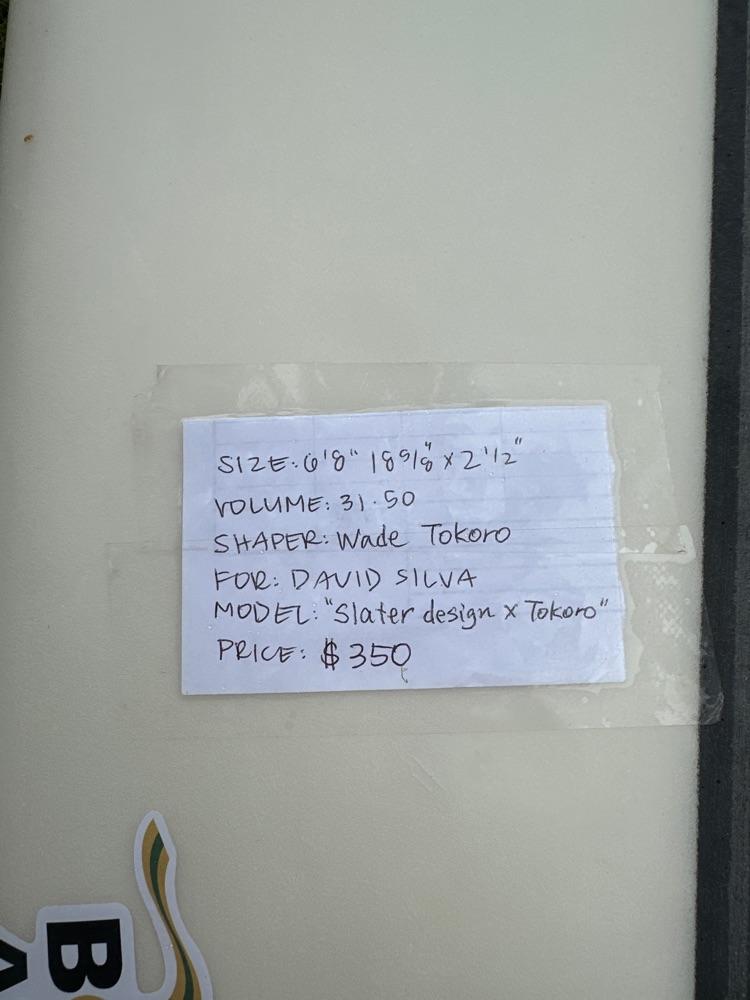 SIZE: 6'8" 18 5/8" x 2 1/2"
VOLUME: 31.50
SHAPER: Wade Tokoro
FOR: DAVID SILVA
MODEL: "Slater design x Tokoro"
PRICE: $350
B